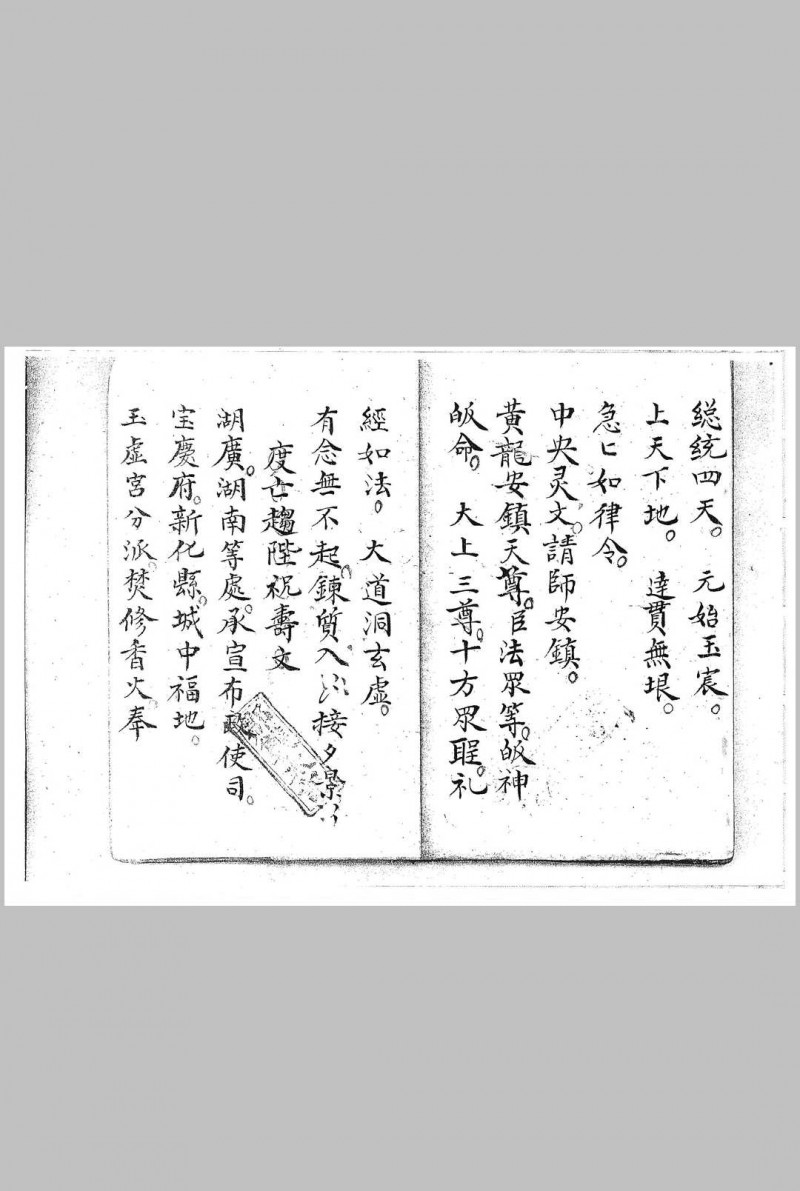 総統四天。 元始玉宸。
上天下地。 達貫無垠。
急匕如律令。
中央灵文。請師安鎮。
黃龍安鎮天尊。臣法眾等。皈神
皈命。 大上三尊。十方眾聖。礼
經如法。 大道洞玄虛。
有念無不起。鍊質入 接夕景
度亡趨陛祝壽文
湖廣。湖南等處。承宣布 使司。
宝慶府。新化縣。城中福地。
玉虛宮分派。焚修香火奉